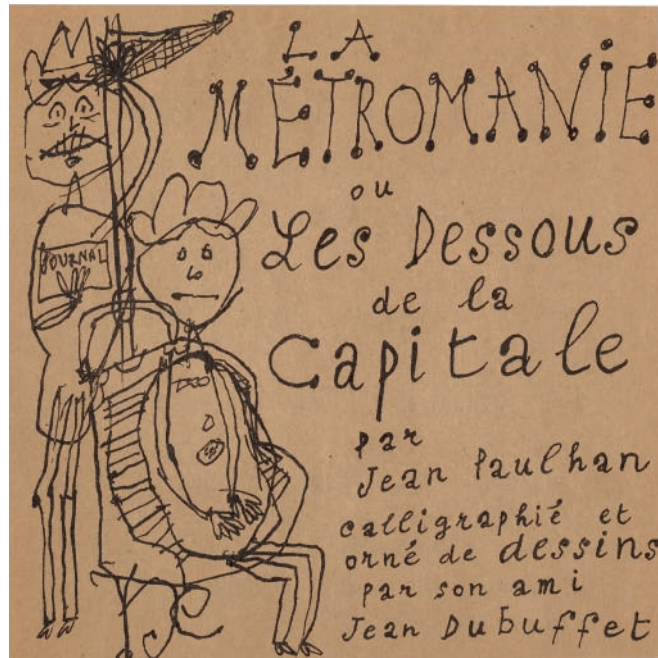 LA
MÉTROMANIE
ou
Les Dessous
de la
Capitale
par
Jean Paulhan
calligraphié et
orné de dessins
par son ami
Jean Dubuffet
JOURNAL